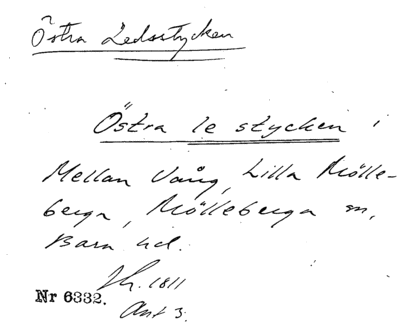 Östra Ledsstycken
Östra le stycken i
Mellan Vång, Lilla Mölle-
berga, Mölleberga sn,
Bara hd.
Sk. 1811
Nr 6332.
Akt 3.